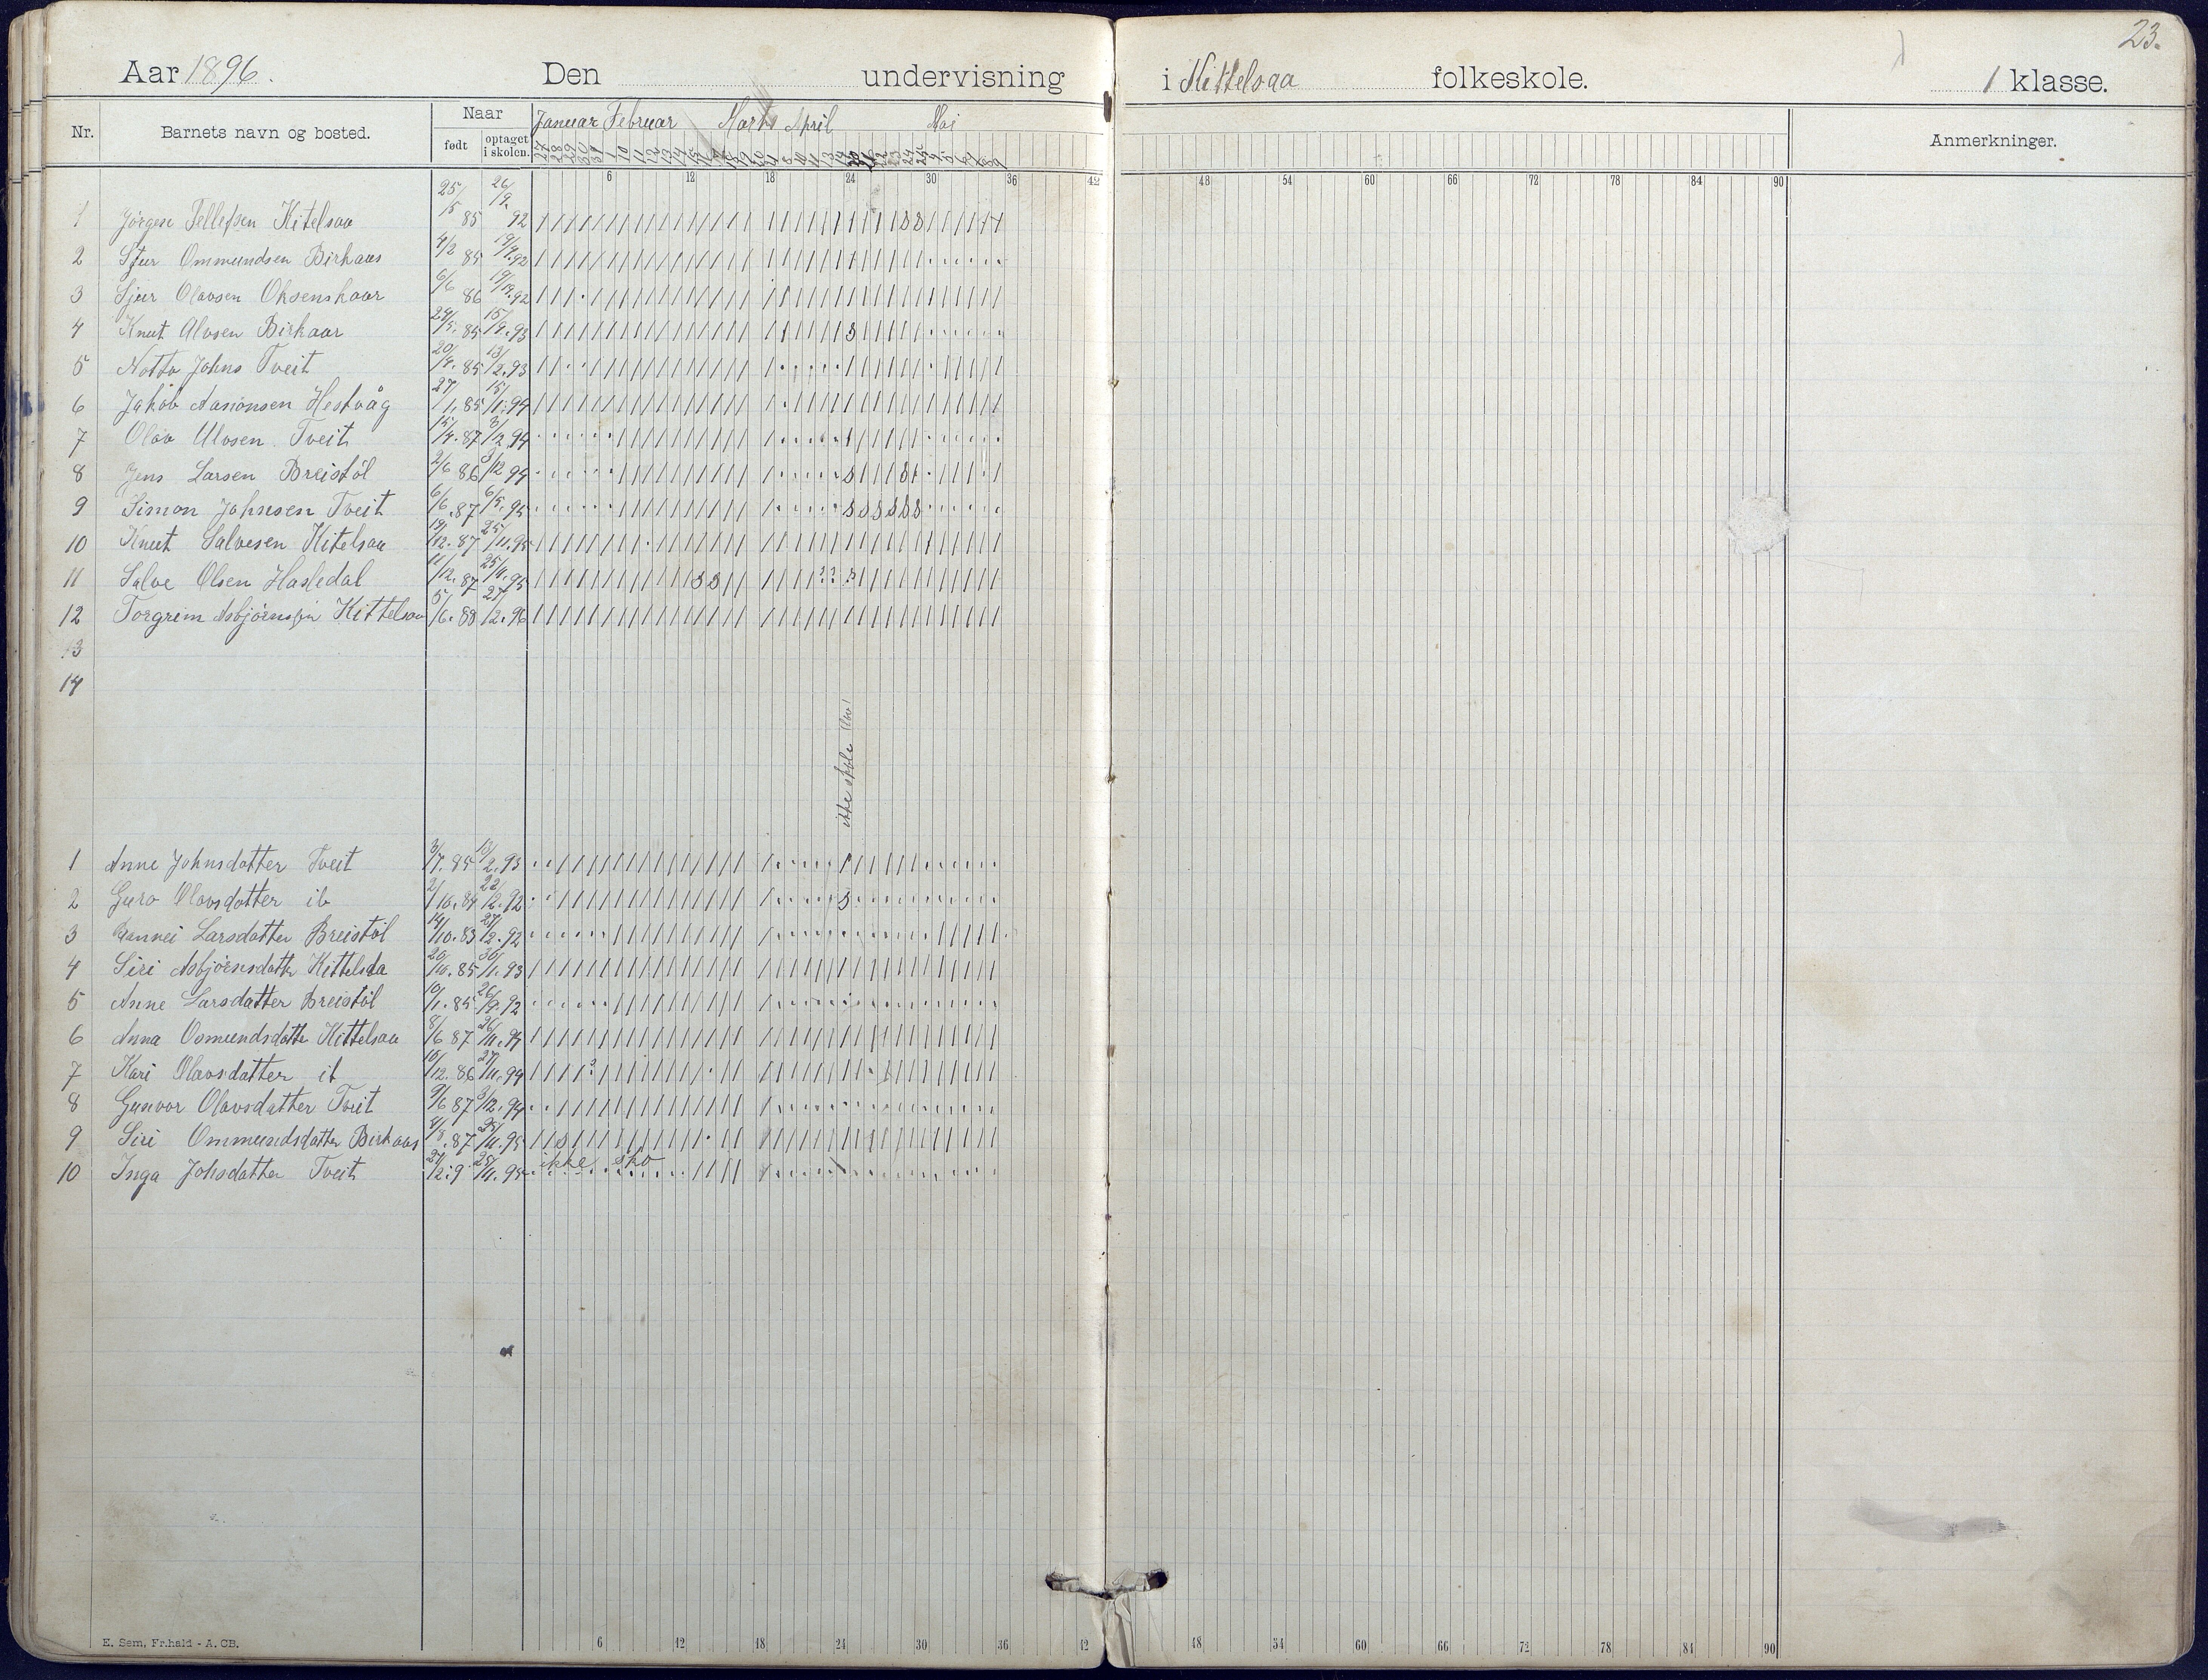 23.
Aar 1896. Den undervisning i Kittelsaa folkeskole. 1 klasse.
Nr. Barnets navn og bosted. Naar født optaget i skolen. Januar Februar Marts April Mai Anmerkninger.
6 12 18 24 30 36 42 48 54 60 66 72 78 84 90
1 Jörgen Tellefsen Kitelsaa 25/5 85 26/9 92
2 Sjur Ommundsen Birkaas 4/2 85 19/9.92
3 Sjur Olavsen Oksenskaar 6/6 86 19/12.92
4 Knut Alvsen Birkaar 29/5.85 15/9.93
5 Notto Johns Tveit 20/9.85 13/2.93
6 Jakob Aasionsen Hestvåg 27/1.85 15/1.94
7 Olav Ulvsen Tveit 15/4.87 3/12 94
8 Jens Larsen Breistöl 2/6 86 3/12 94
9 Simon Johnsen Tveit 6/6.87 6/5.95
10 Knut Salvesen Kitelsaa 19/12.87 25/11.95
11 Salve Olsen Hasledal 11/12.87 25/11.95
12 Torgrim Asbjörnsen Kittelsaa 5/6.88 27/2.96
13
14
ikke skole
1 Anne Johnsdatter Tveit 3/7.85 13/2.93
2 Guro Olavsdatter ib 2/10.84 22/12.92
3 Gannei Larsdatter Breistöl 14/10.83 27/2.92
4 Siri Asbjörnsdatt Kittelsaa 20/10.85 30/11.93
5 Anne Larsdatter Breistöl 10/1.85 26/9.92
6 Anna Osmundsdatte Kittelsaa 8/6 87 26/11.94
7 Kari Olavsdatter ib 10/12.86 27/11.94
8 Gunvor Olavsdatter Tveit 9/6 87 3/12.94
9 Siri Ommundsdatter Birkaas 4/8.87 25/11.95
10 Inga Johsdatter Tveit 27/12.9 25/11.95 ikke sko
E. Sem, Fr.hald - A. CB.
6 12 18 24 30 36 42 48 54 60 66 72 78 84 90